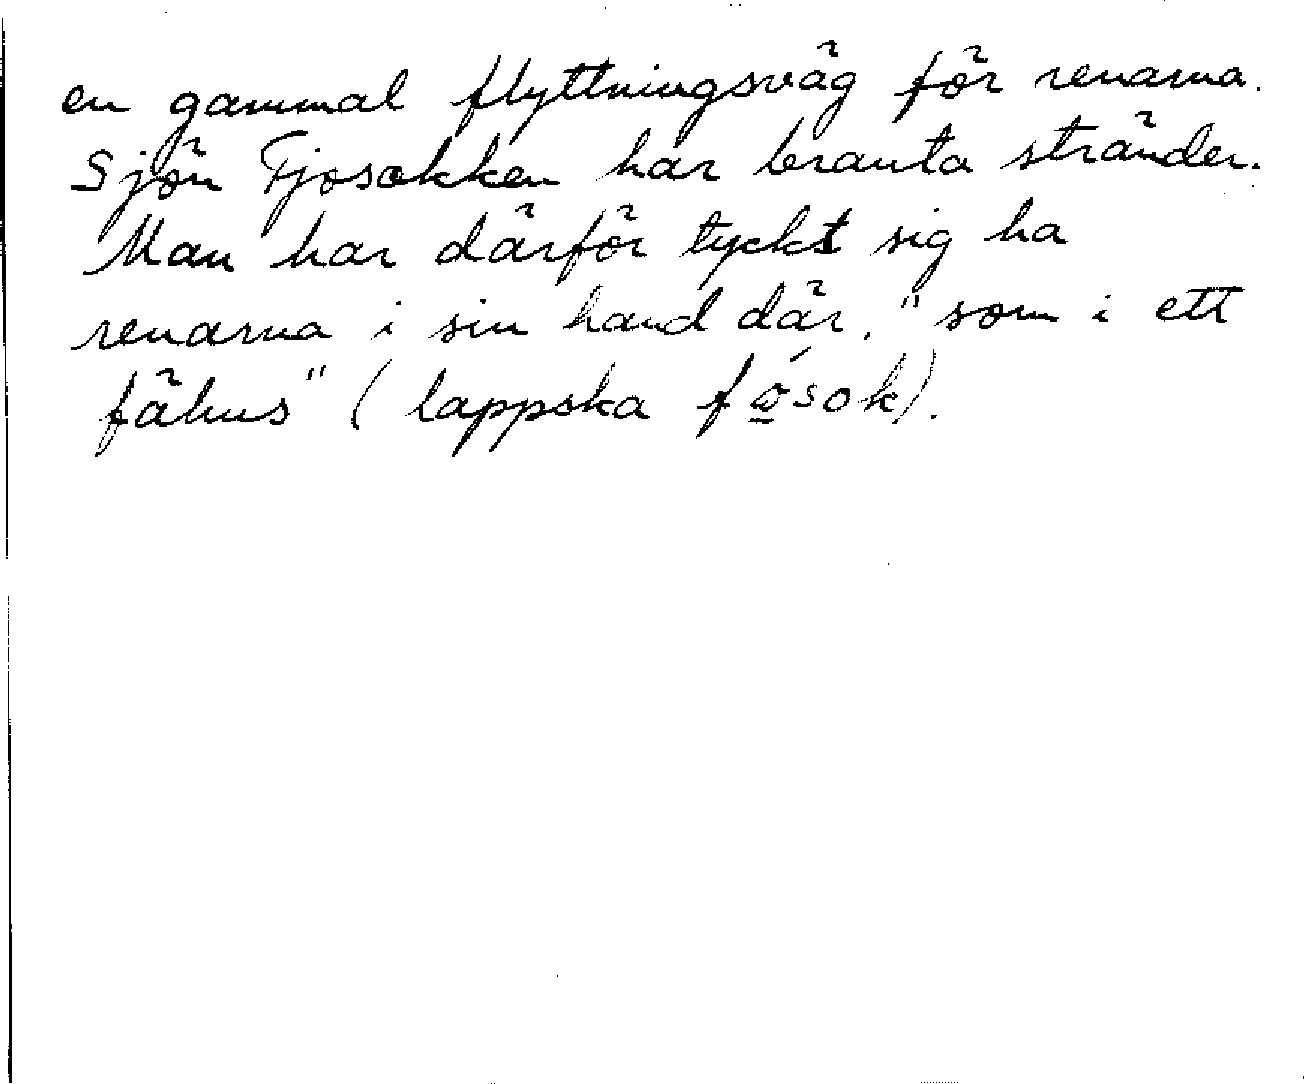 en gammal flyttningsväg för renarna.
Sjön Fjosokken har branta stränder.
Man har därför tyckt sig ha
renarna i sin hand där, "som i ett
fähus" (lappska fo̲̒sok).